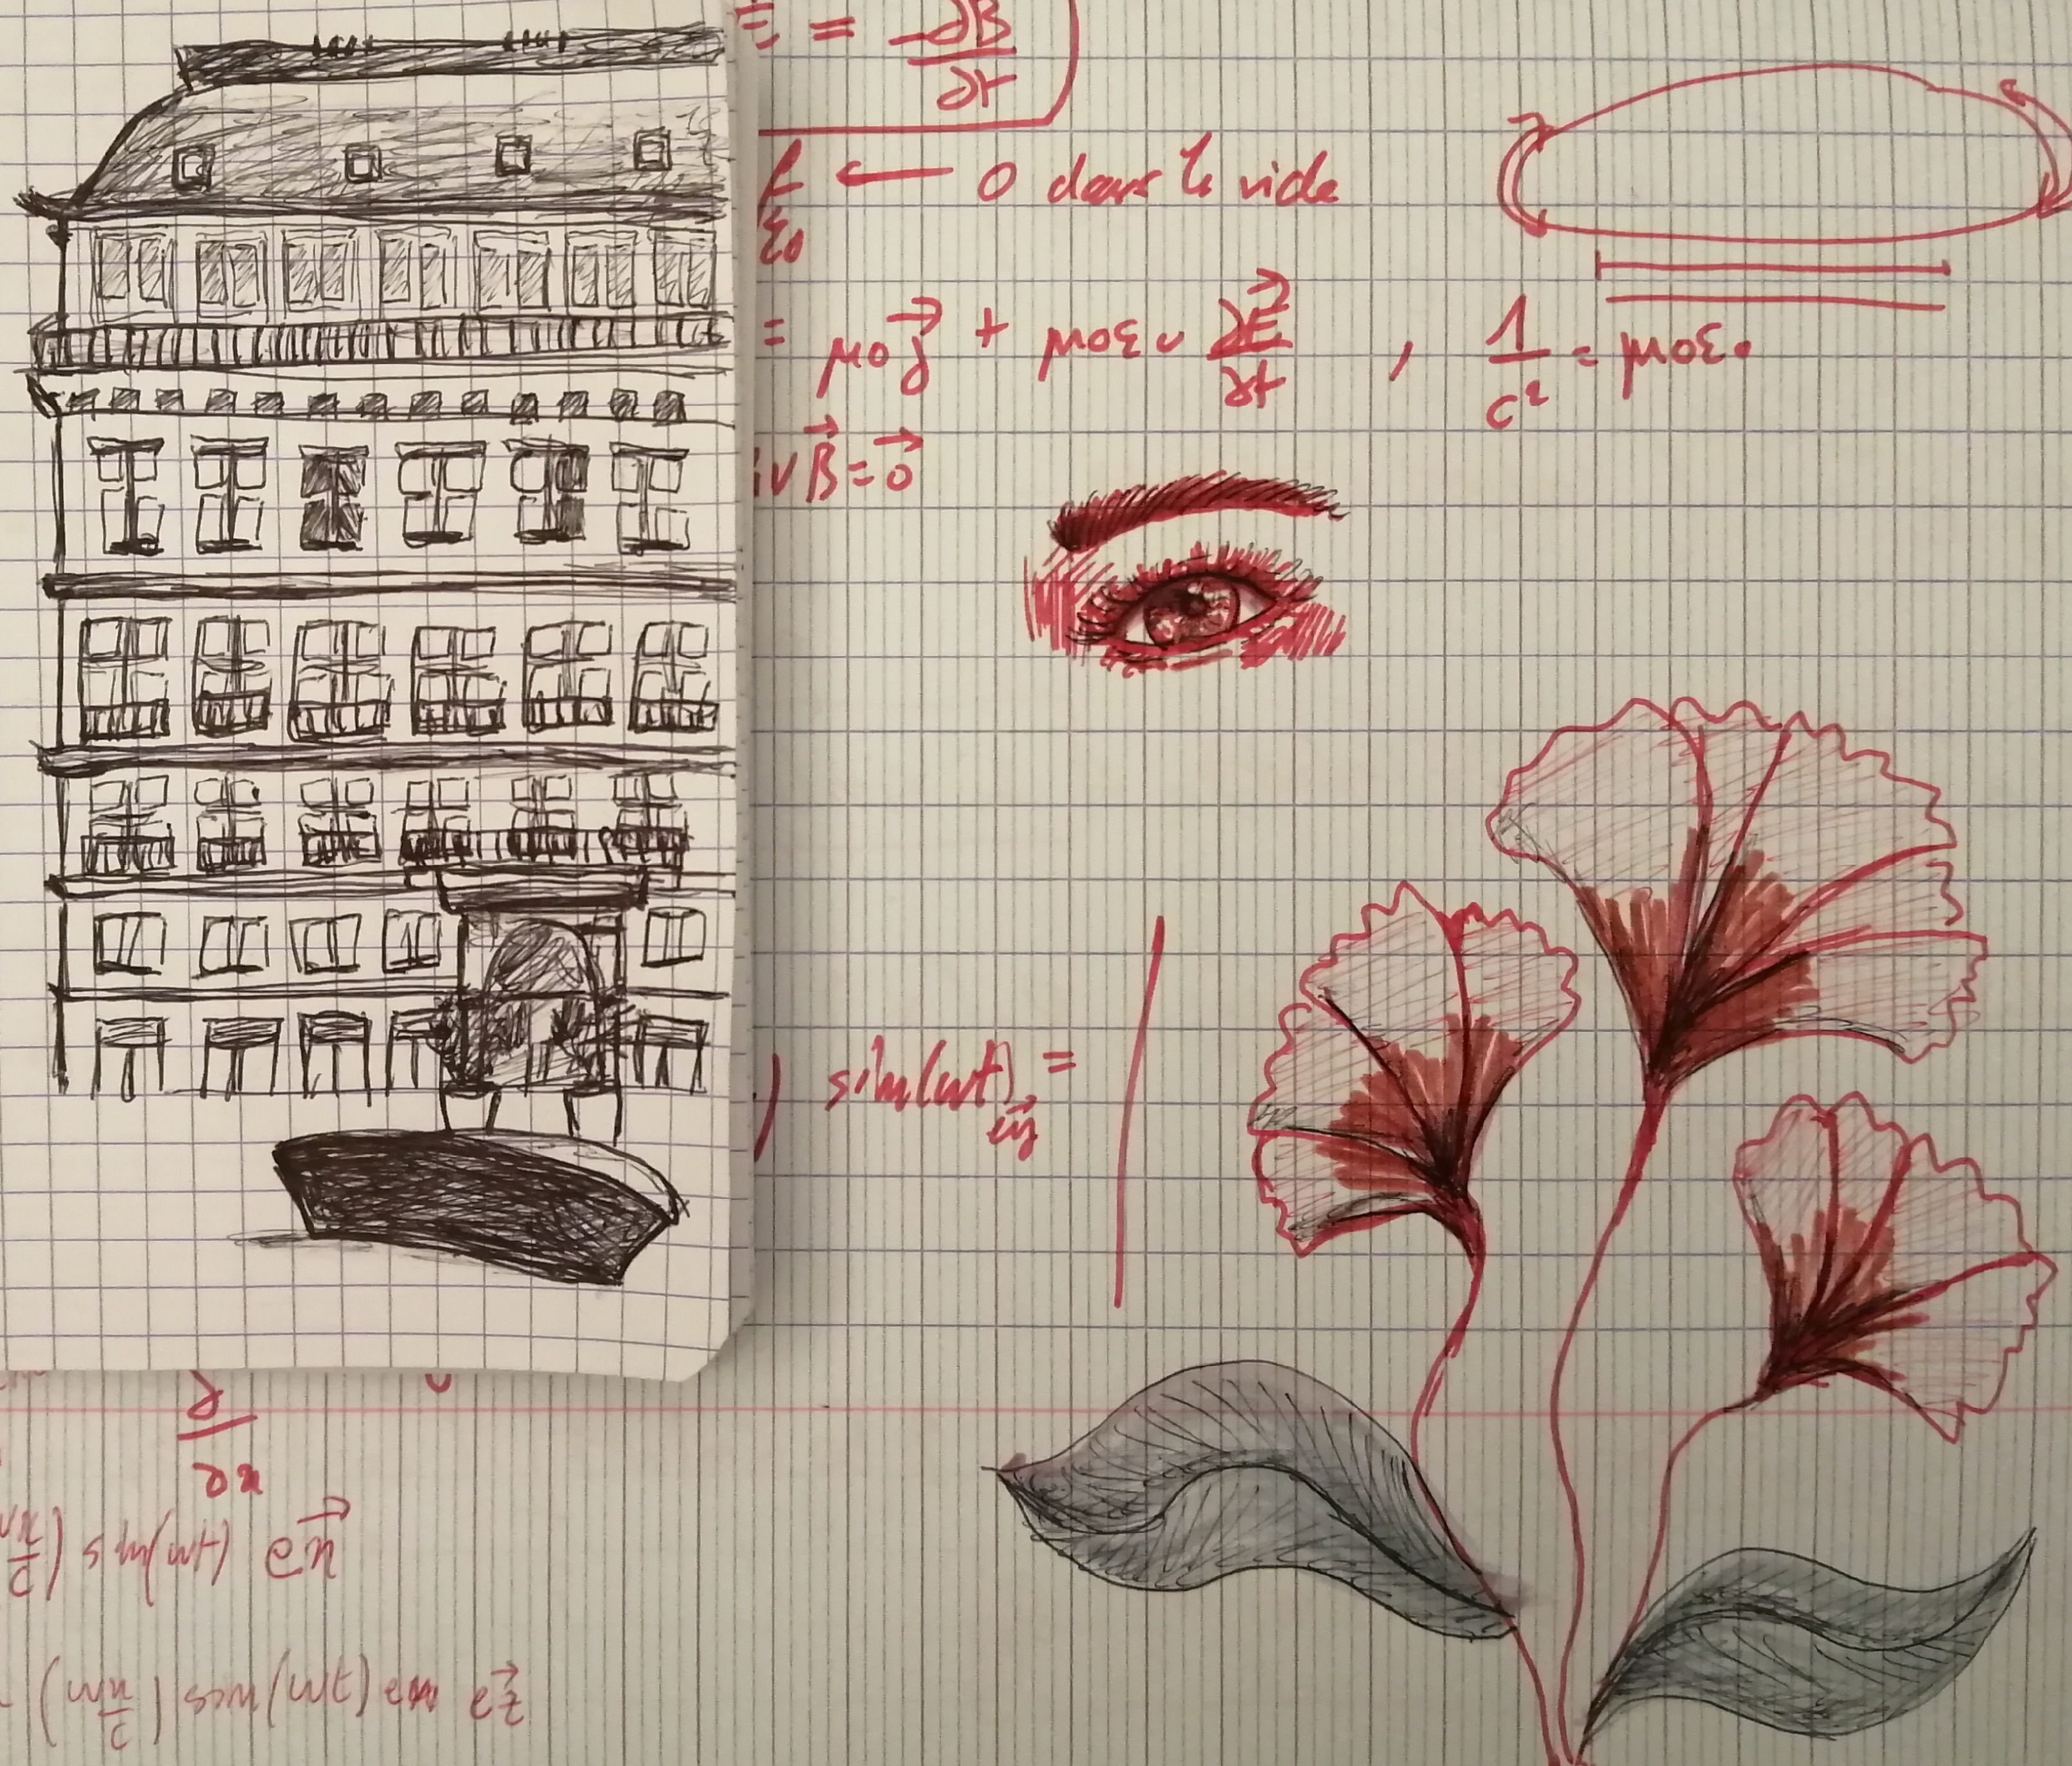 = -∂B/∂t
ρ/ε0 ← 0 dans le vide
= μ0 j⃗ + μ0ε0 ∂E⃗/∂t , 1/c² = μ0ε0
iv B⃗ = 0⃗
) sin(ωt) e⃗y =
∂/∂x
) sin(ωt) e⃗x
(ωx/c) sin(ωt) e⃗z